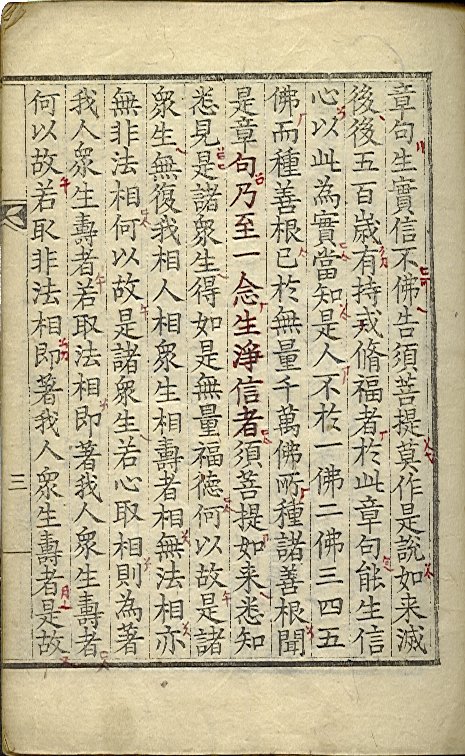 章句生實信不佛告須菩提莫作是說如来滅
後後五百歲有持戒脩福者於此章句能生信
心以此為實當知是人不於一佛二佛三四五
佛而種善根已於無量千萬佛所種諸善根聞
是章句乃至一念生淨信者須菩提如来悉知
悉見是諸衆生得如是無量福德何以故是諸
衆生無復我相人相衆生相壽者相無法相亦
無非法相何以故是諸衆生若心取相則為著
我人衆生壽者若取法相即著我人衆生壽者
何以故若取非法相即著我人衆生壽者是故
三